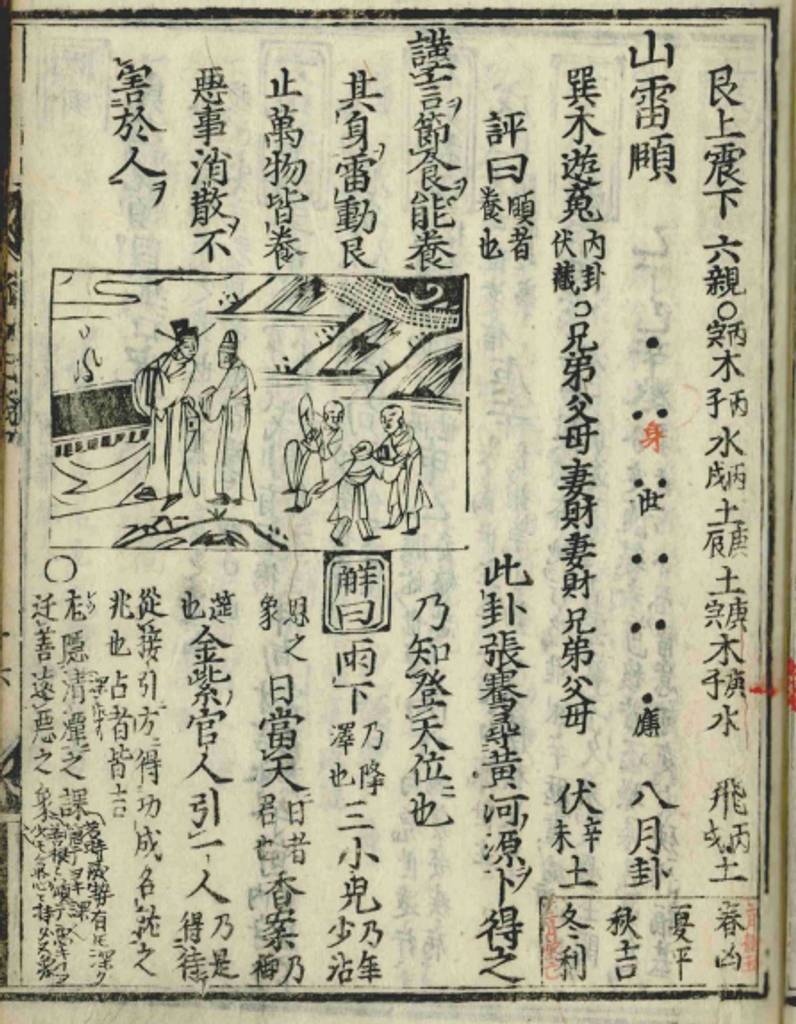 艮上震下 六親○丙寅木丙子水丙戌土庚辰土庚寅木庚子水 飛丙戌土
山雷頤 身 世 應 八月卦
巽木遊䰟內卦伏藏○兄弟父母妻財妻財兄弟父母 伏辛未土
春凶
夏平
秋吉
冬利
評曰頤者養也
此卦張騫尋黃河源下得之
謹言節食能養
乃知登天位也
其身雷動艮
止萬物皆養
惡事消散不
害於人
解曰雨下乃降澤也三小兒乃年少沾
恩之象日當天日者君也香案乃
也金紫官人引一人乃是得待
從接引方得功成名
兆也占者皆吉
之課
遷善遠惡之象